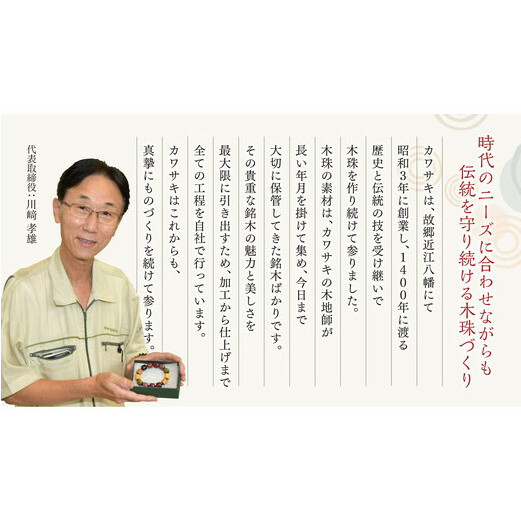 時代のニーズに合わせながらも
伝統を守り続ける木珠づくり
カワサキは、故郷近江八幡にて
昭和3年に創業し、1400年に渡る
歴史と伝統の技を受け継いで
木珠を作り続けて参りました。
木珠の素材は、カワサキの木地師が
長い年月を掛けて集め、今日まで
大切に保管してきた銘木ばかりです。
その貴重な銘木の魅力と美しさを
最大限に引き出すため、加工から仕上げまで
全ての工程を自社で行っています。
カワサキはこれからも、
真摯にものづくりを続けて参ります。
代表取締役：川﨑 孝雄